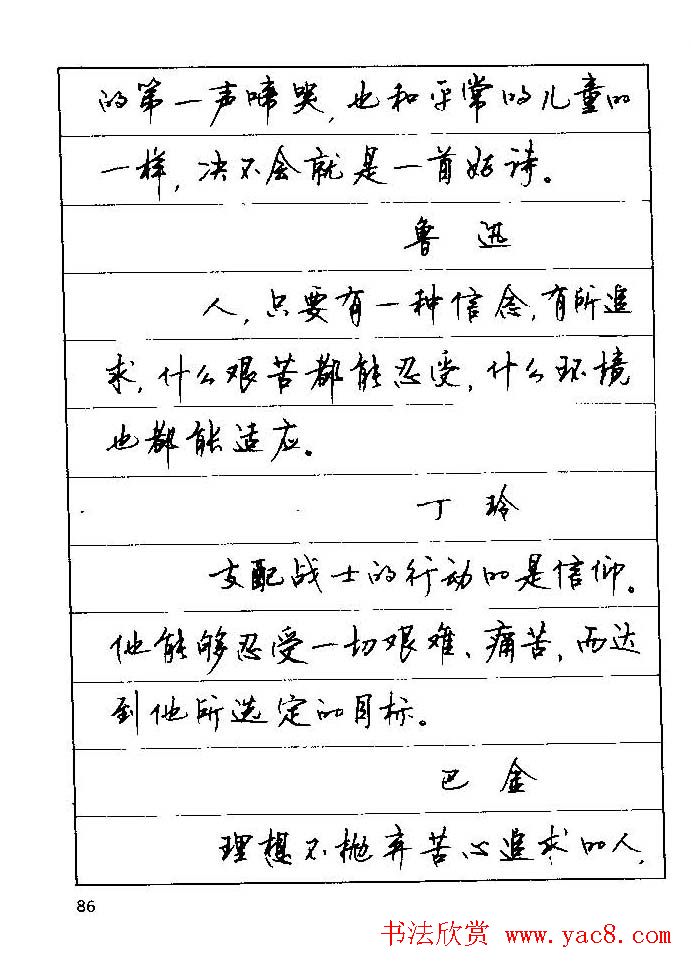 的第一声啼哭，也和平常的儿童的
一样，决不会就是一首好诗。
鲁迅
人，只要有一种信念，有所追
求，什么艰苦都能忍受，什么环境
也都能适应。
丁玲
支配战士的行动的是信仰。
他能够忍受一切艰难、痛苦，而达
到他所选定的目标。
巴金
理想不抛弃苦心追求的人，
86
书法欣赏 www.yac8.com